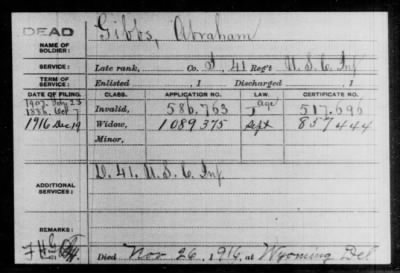 DEAD
Gibbs, Abraham
NAME OF SOLDIER:
SERVICE: Late rank, Co. I, 41 Reg't U.S.C. Inf
TERM OF SERVICE: Enlisted , 1 Discharged , 1
DATE OF FILING. CLASS. APPLICATION NO. LAW. CERTIFICATE NO.
1907 Feb 23 age
1886 Oct 7 Invalid, 586.763 517.696
1916 Dec 19 Widow, 1089375 Sept 857444
Minor,
D. 41. U.S.C. Inf.
ADDITIONAL SERVICES:
REMARKS:
Died Nov 26, 1916, at Wyoming Del